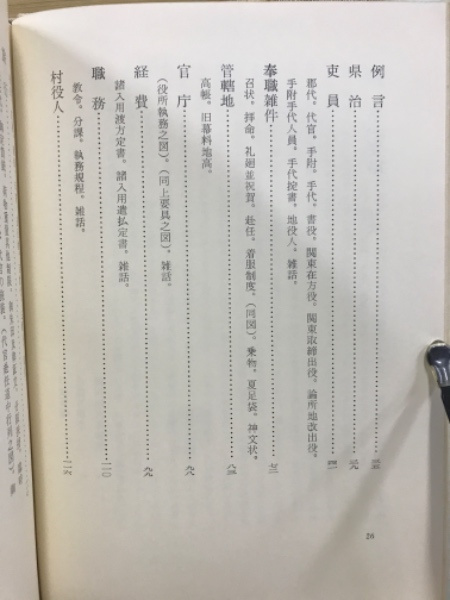 例言……三五
県治……三九
吏員……四一
郡代。代官。手附。手代。書役。関東在方役。関東取締出役。論所地改出役。
手附手代人員。手代掟書。地役人。雑話。
奉職雑件……七三
召状。拝命。礼廻並祝賀。赴任。着服制度。（同図）。乗物。夏足袋。神文状。
管轄地……八三
高帳。旧幕料地高。
官庁……九八
（役所執務之図）。（同上要具之図）。雑話。
経費……九九
諸入用渡方定書。諸入用遣払定書。雑話。
職務……一一〇
教令。分課。執務規程。雑話。
村役人……一一六
26